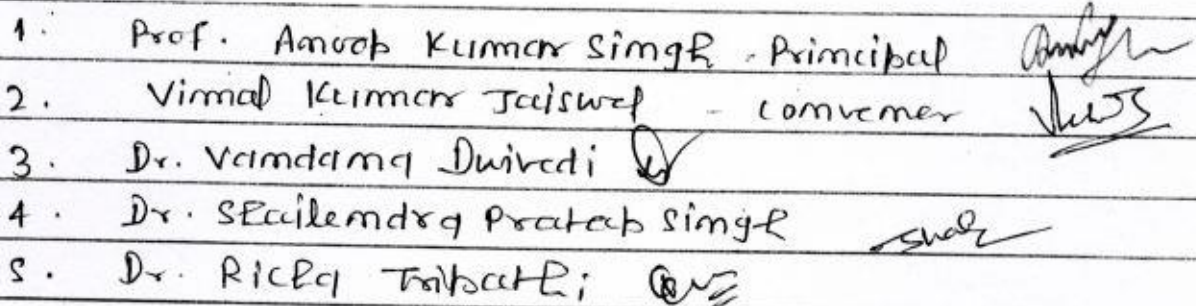 1. Prof. Anoop Kumar Singh - Principal
2. Vimal Kumar Jaiswal - Convener
3. Dr. Vandana Dwivedi
4. Dr. Shailendra Pratap Singh
5. Dr. Richa Tripathi